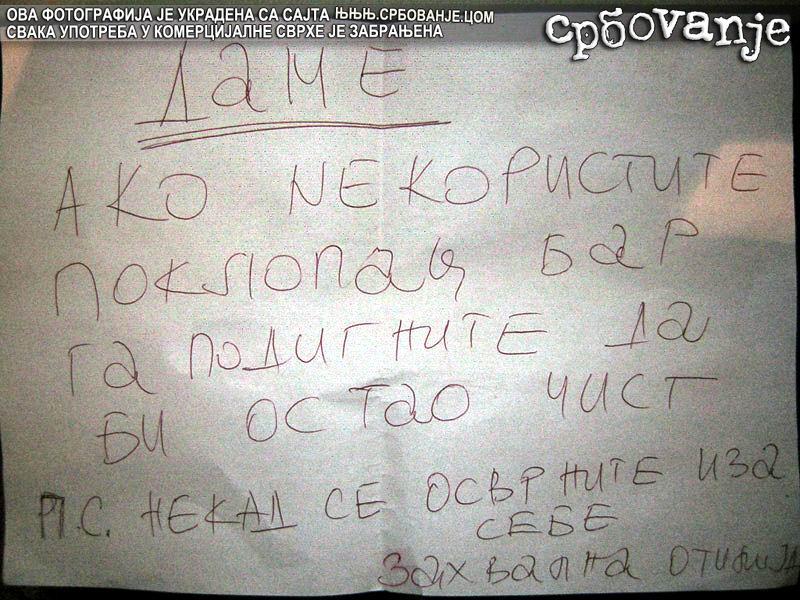 ОВА ФОТОГРАФИЈА ЈЕ УКРАДЕНА СА САЈТА ЊЊЊ.СРБОВАЊЕ.ЦОМ
СВАКА УПОТРЕБА У КОМЕРЦИЈАЛНЕ СВРХЕ ЈЕ ЗАБРАЊЕНА
србоvanje
ДАМЕ
АКО НЕ КОРИСТИТЕ
ПОКЛОПАЦ БАР
ГА ПОДИГНИТЕ ДА
БИ ОСТАО ЧИСТ
П.С. НЕКАД СЕ ОСВРНИТЕ ИЗА
СЕБЕ
ЗАХВАЛНА